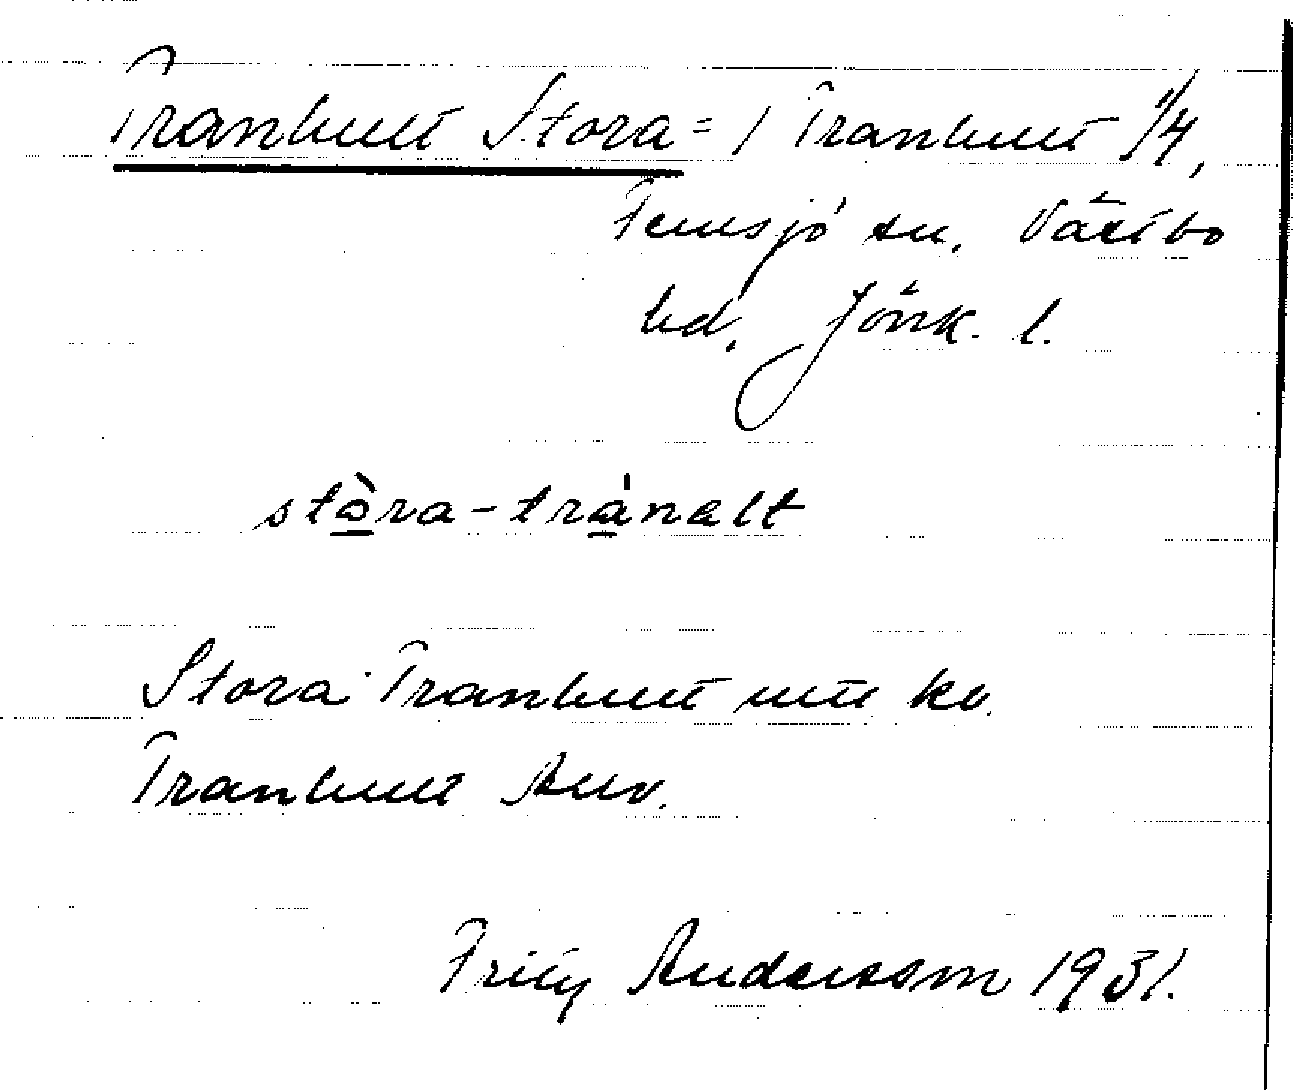 Tranhult Stora = 1 Tranhult 1/4,
Femsjö sn. Västbo
hd. Jönk. l.
stòra-tránalt
Stora Tranhult
Tranhult Anv.
Andersson 1931.